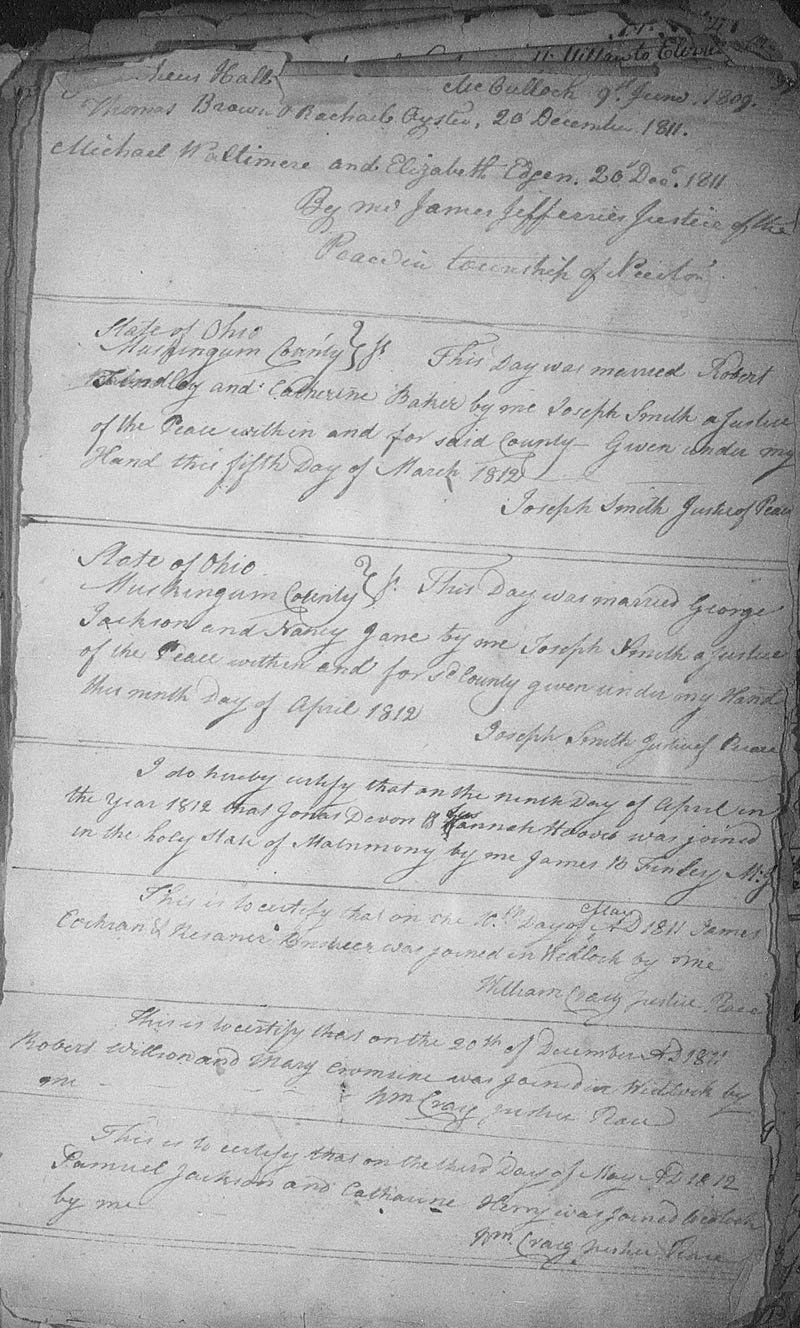 Hall McCulloch 9th June. 1809.
Thomas Brown & Rachael Oyster, 20 December 1811.
Michael Waltimere and Elizabeth Edgen. 20 Decr. 1811
By me James Jefferries Justice of the
Peace in township of Newton
State of Ohio
Muskingum County } Ss. This Day was married Robert
Findley and Catherine Baker by me Joseph Smith a Justice
of the Peace within and for said County Given under my
Hand this fifth Day of March 1812
Joseph Smith Justice of Peace
State of Ohio
Muskingum County } Ss. This Day was married George
Jackson and Nancy Jane by me Joseph Smith a Justice
of the Peace within and for sd County given under my Hand
this ninth Day of April 1812
Joseph Smith Justice of Peace
I do hereby certify that on the ninth Day of April in
the Year 1812 that Jonas Devon & Hannah Hoover was joined
in the holy State of Matrimony by me James B Finley M.G
This is to certify that on the 10th Day of May AD 1811 James
Cochran & was joined in Wedlock by me
William Craig Justice Peace
This is to certify that on the 20th of December AD 1811
Robert Willson and Mary Cromune was joined in Wedlock by
me Wm Craig Justice Peace
This is to certify that on the third Day of May AD 1812
Samuel Jackson and Catharine Henry was joined Wedlock
by me
Wm. Craig Justice Peace